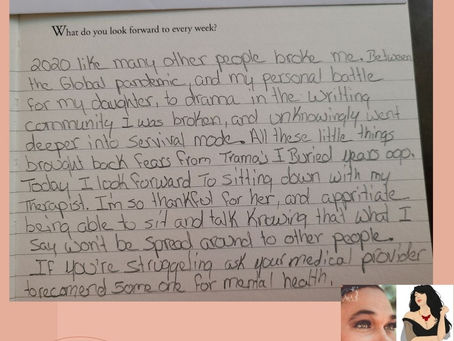 What do you look forward to every week?
2020 like many other people broke me. Between
the Global pandemic, and my personal battle
for my daughter, to drama in the writting
community I was broken, and unknowingly went
deeper into servival mode. All these little things
brought back fears from Trama's I Buried years oop.
Today I look forward To sitting down with my
Therapist. I'm so thankful for her, and appritiate
being able to sit and talk Knowing that what I
say won't be spread around to other people.
If you're struggeling ask your medical provider
to recomend some one for mental health.